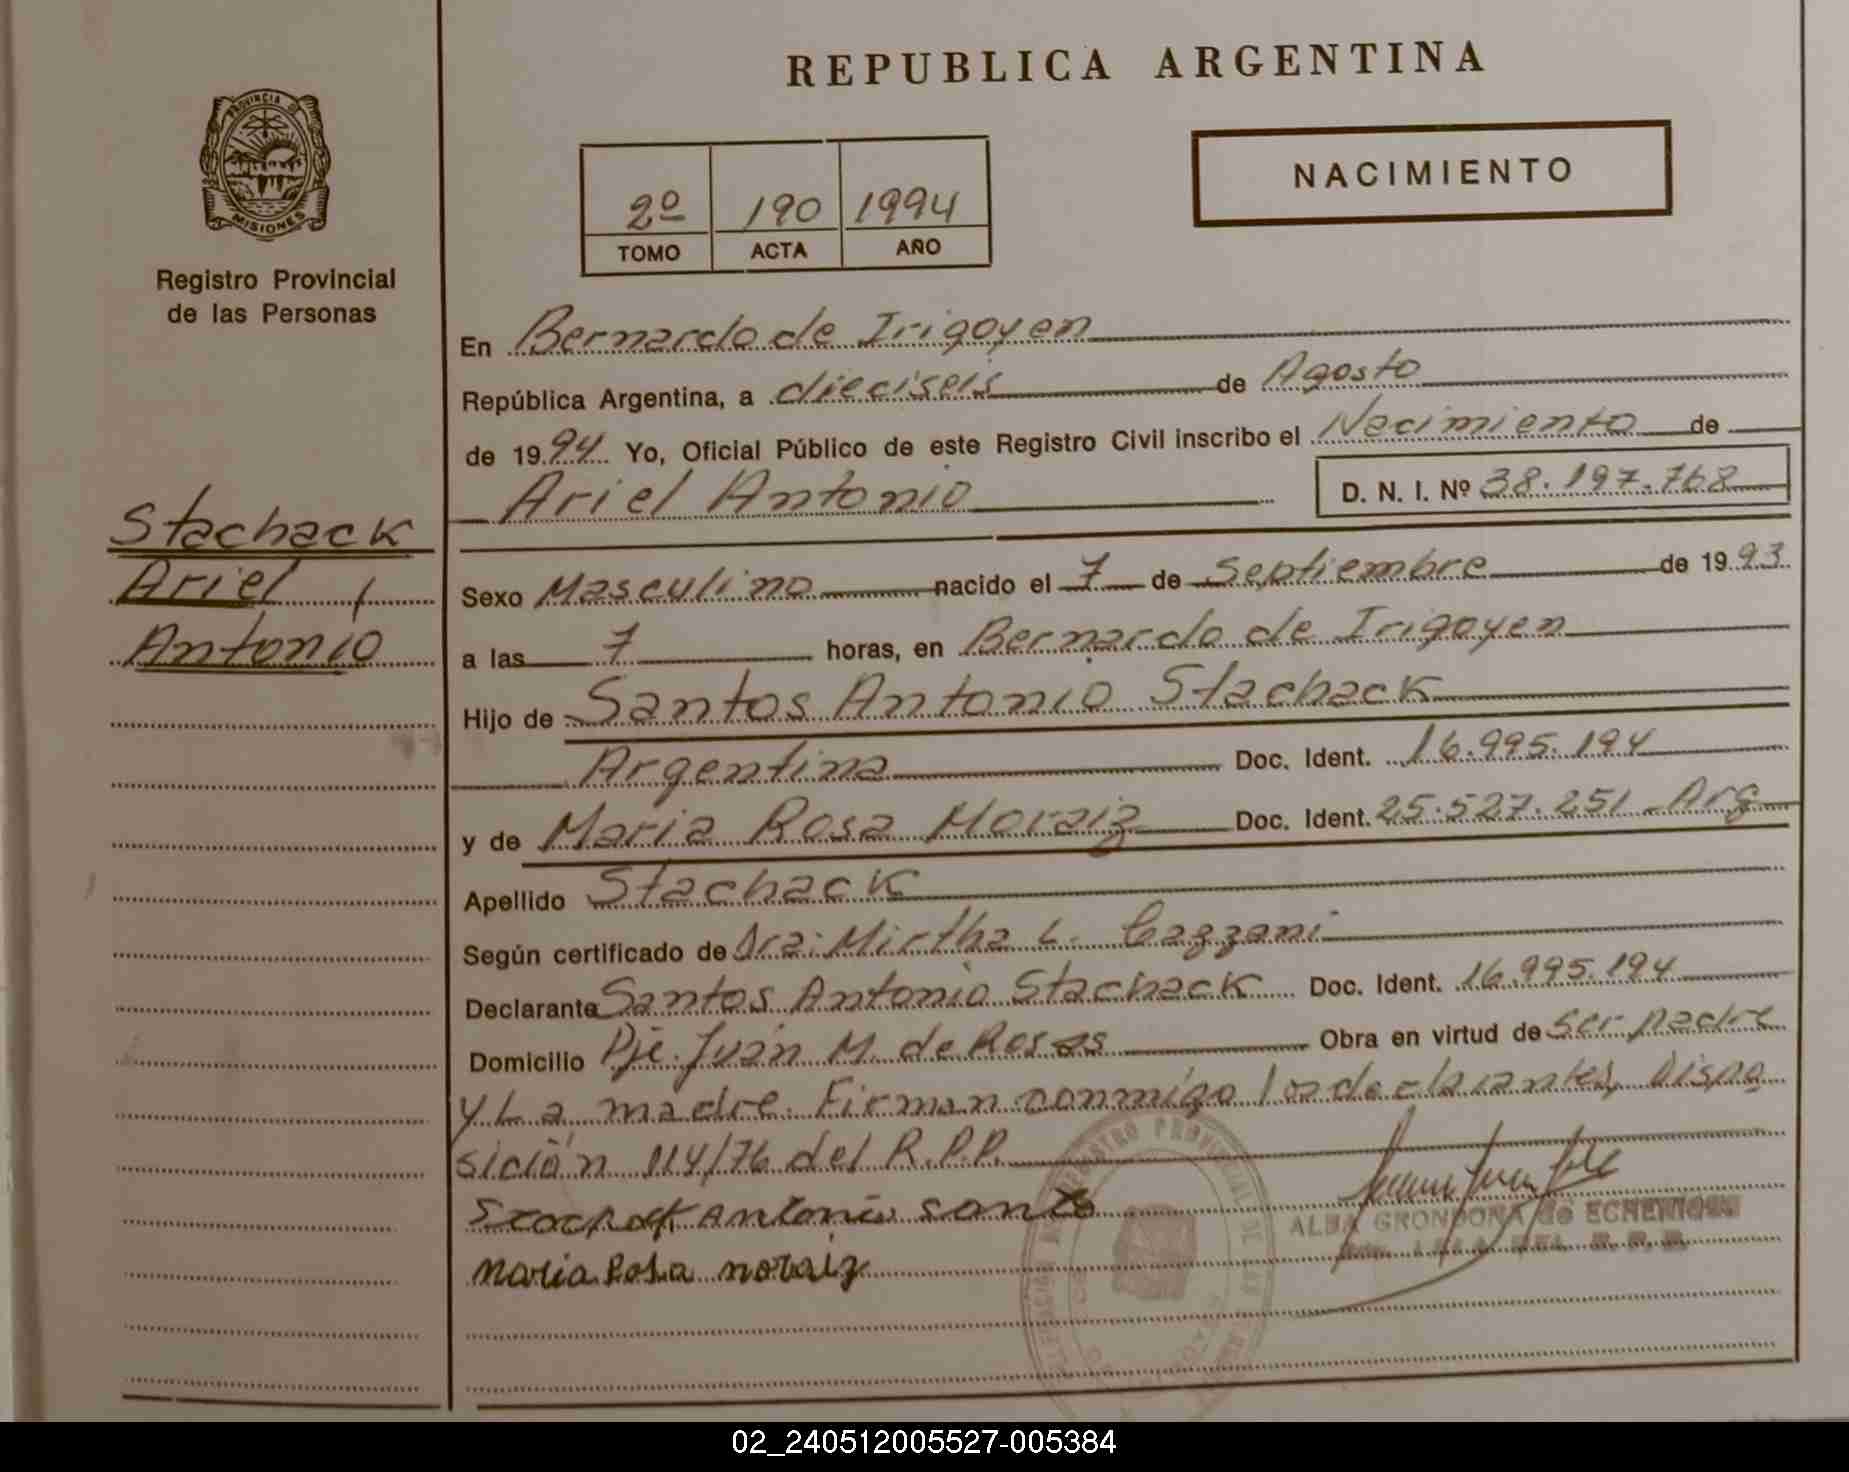 REPUBLICA ARGENTINA
PROVINCIA DE
MISIONES
Registro Provincial
de las Personas
2º 190 1994
TOMO ACTA AÑO
NACIMIENTO
En Bernardo de Irigoyen
República Argentina, a dieciseis de Agosto
de 1994 Yo, Oficial Público de este Registro Civil inscribo el Nacimiento de
Ariel Antonio D. N. I. Nº 38.197.768
Stachack
Ariel
Antonio
Sexo Masculino nacido el 7 de Septiembre de 1993
a las 7 horas, en Bernardo de Irigoyen
Hijo de Santos Antonio Stachack
Argentina Doc. Ident. 16.995.194
y de Maria Rosa Moraiz Doc. Ident. 25.527.251 Arg
Apellido Stachack
Según certificado de Dra: Mirtha L. Cazzani
Declarante Santos Antonio Stachack Doc. Ident. 16.995.194
Domicilio Pje. Juan M. de Rosas Obra en virtud de ser padre
y La madre. Firman conmigo los declarantes, Dispo
sición 114/76 del R.P.P.
Antonio Santo
Maria Rosa moraiz
ALBA GRONDONA de
REGISTRO PROVINCIAL DE LAS
02_240512005527-005384